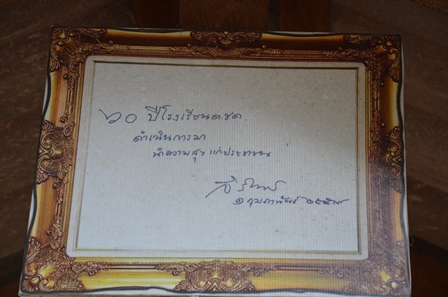 ๖๐ ปีโรงเรียนตชด
ดำเนินการมา
นำความสุข แก่ประชาชน
สิรินธร
๑ กุมภาพันธ์ ๒๕๕๙